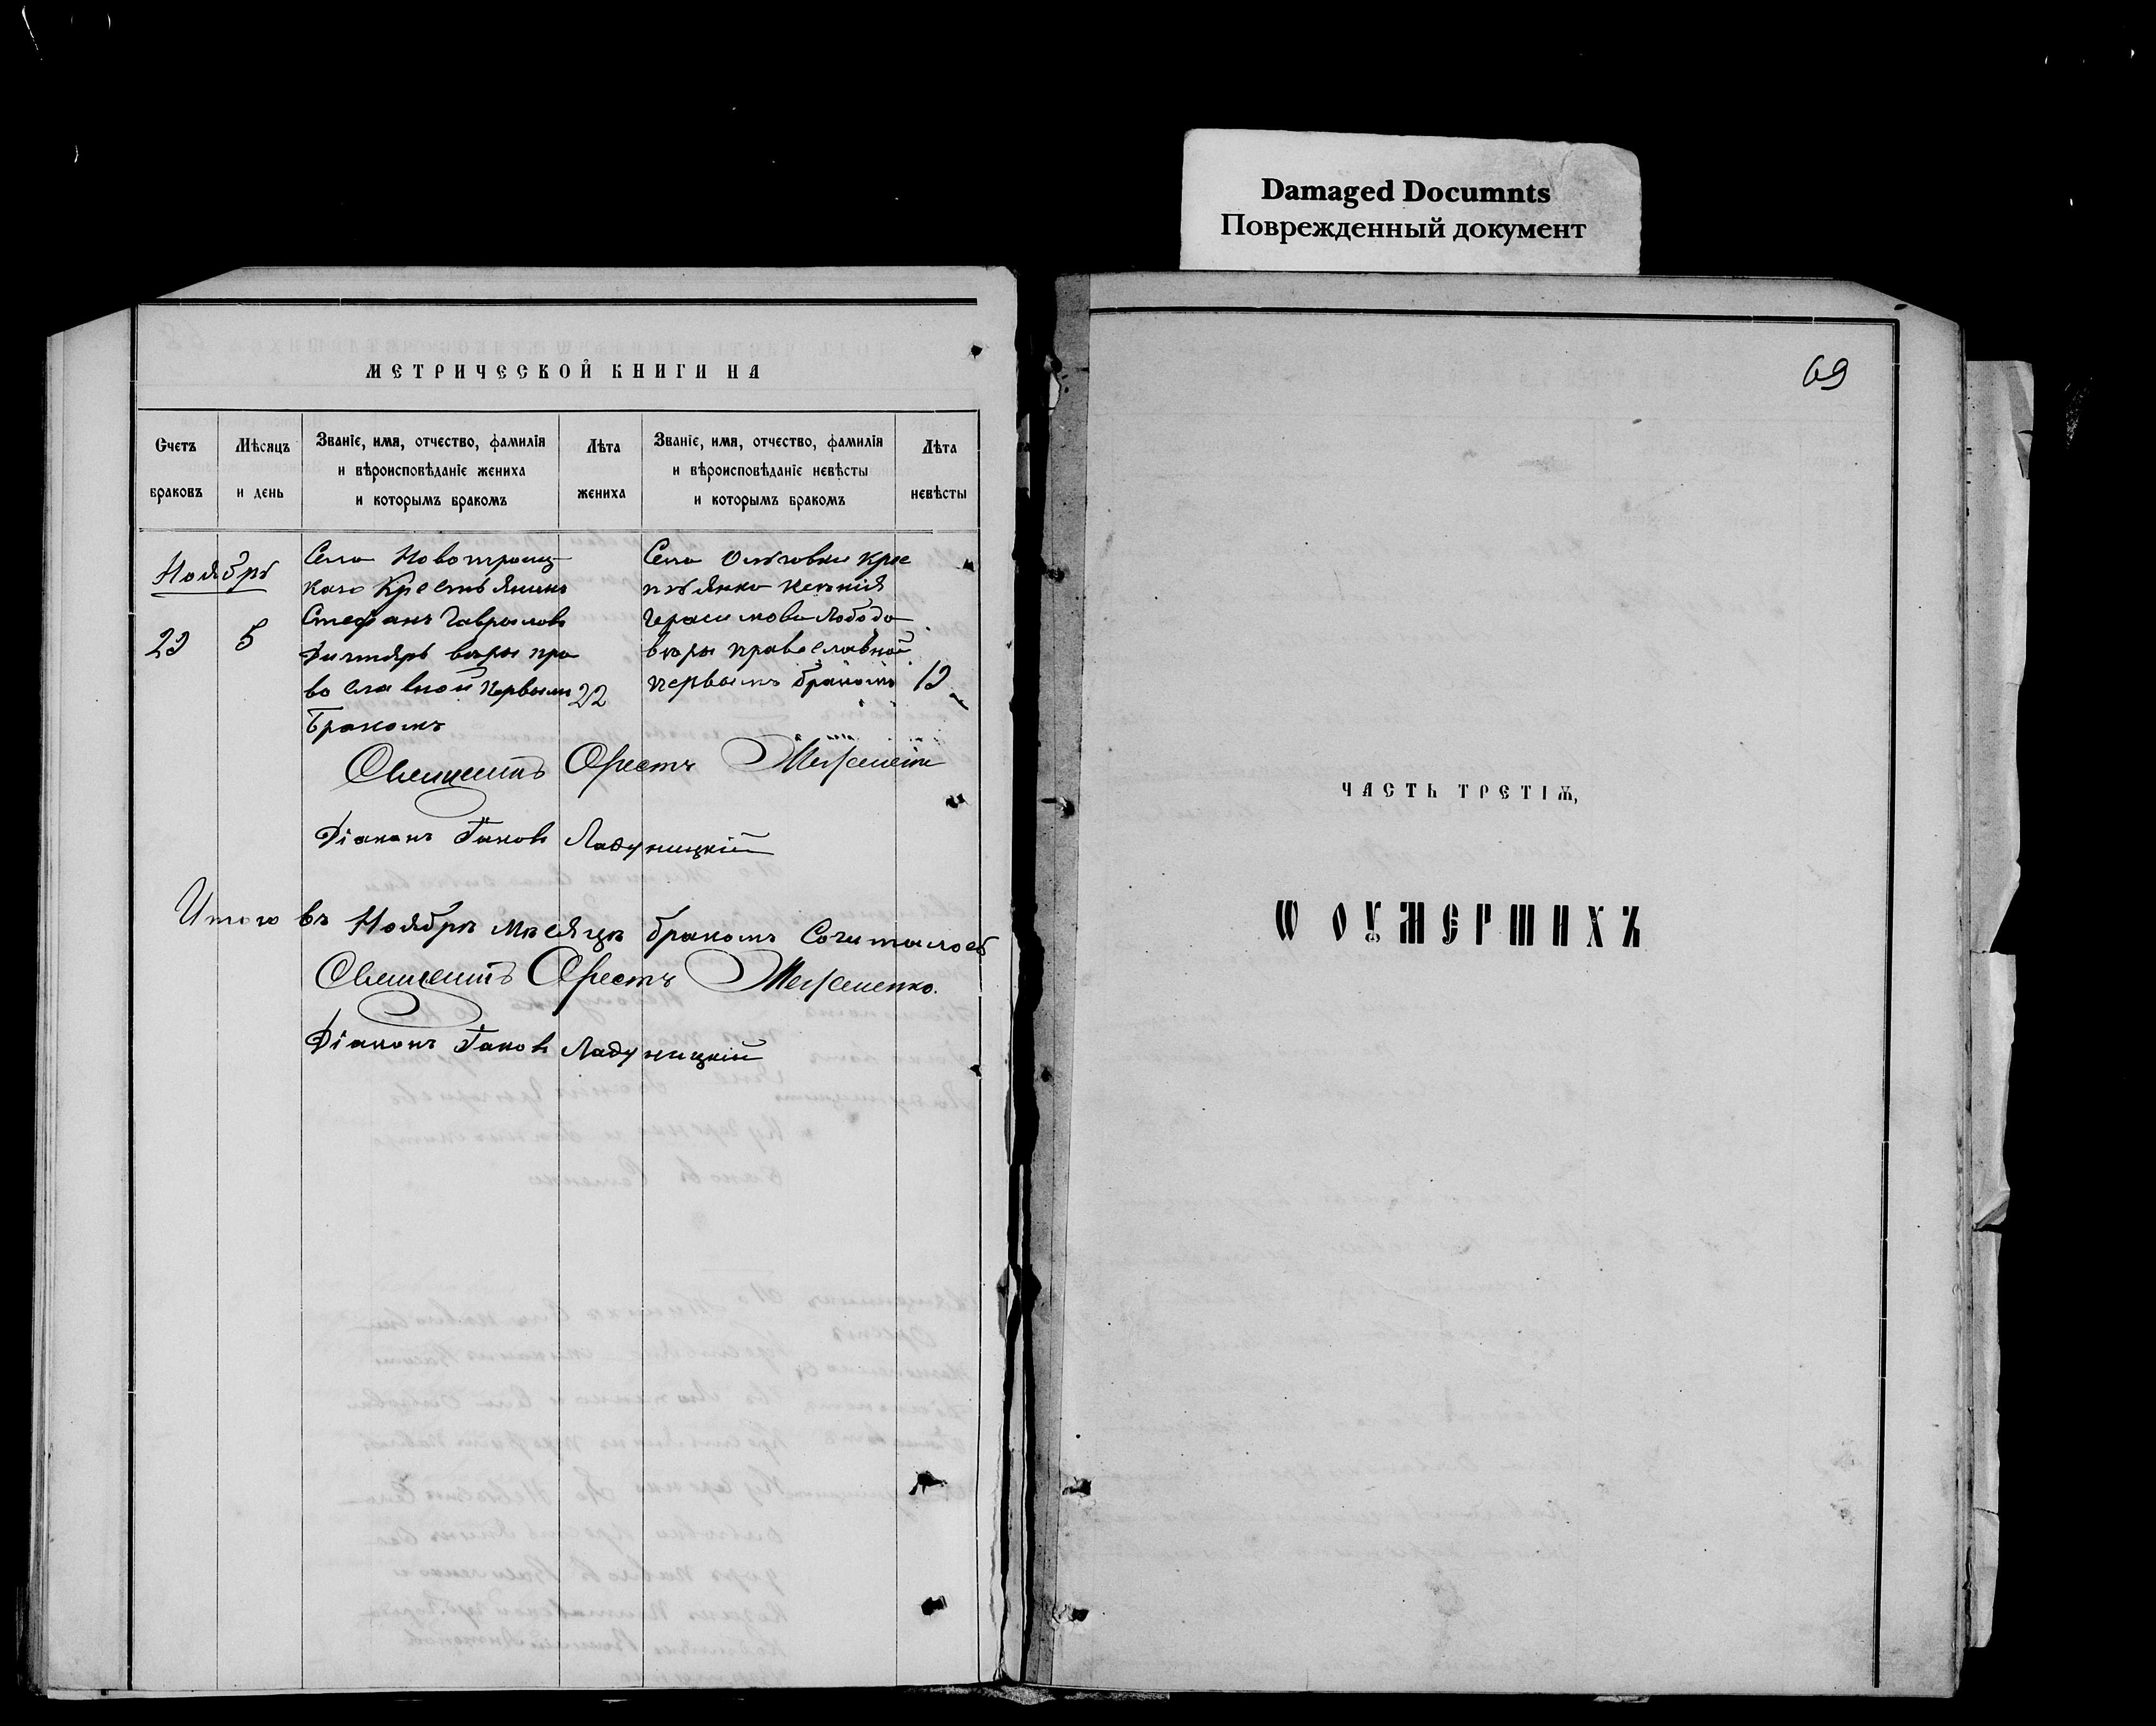 Damaged Documnts
Поврежденный документ
МЕТРИЧЕСКОЙ КНИГИ НА
Счетъ браковъ
Мѣсяцъ и день
Званіе, имя, отчество, фамилія и вѣроисповѣданіе жениха и которымъ бракомъ
Лѣта жениха
Званіе, имя, отчество, фамилія и вѣроисповѣданіе невѣсты и которымъ бракомъ
Лѣта невѣсты
Ноябрь
23 5
Села Новотроиц
каго Крестьянинъ
Стефанъ Гавриловъ
вѣры пра
вославной первымъ
бракомъ
22
Села Ольговки Крес
тьянка Ксенія
Герасимова Лобода
вѣры православной
первымъ бракомъ
19
Священникъ Орестъ
Діаконъ Іаковъ Ладухницкій
Итого въ Ноябрѣ мѣсяцѣ бракомъ Сочиталось
Священникъ Орестъ
Діаконъ Іаковъ Ладухницкій
69
ЧАСТЬ ТРЕТІѦ,
Ѡ ОУМЕРШИХЪ